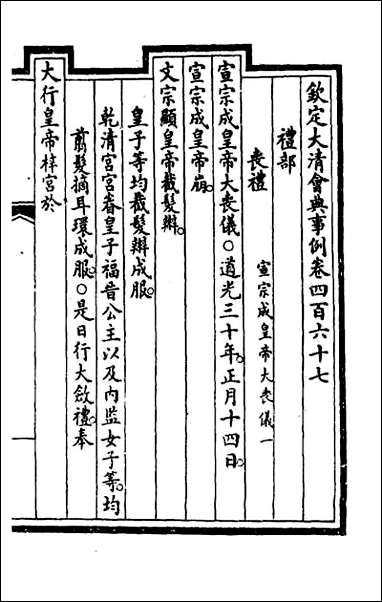 欽定大清會典事例卷四百六十七
禮部
喪禮 宣宗成皇帝大喪儀一
宣宗成皇帝大喪儀〇道光三十年正月十四日
宣宗成皇帝崩
文宗顯皇帝截髮辮
皇子等均截髮辮成服
乾清宮宮眷皇子福晉公主以及內監女子等均
翦髮摘耳環成服〇是日行大斂禮奉
大行皇帝梓宮於